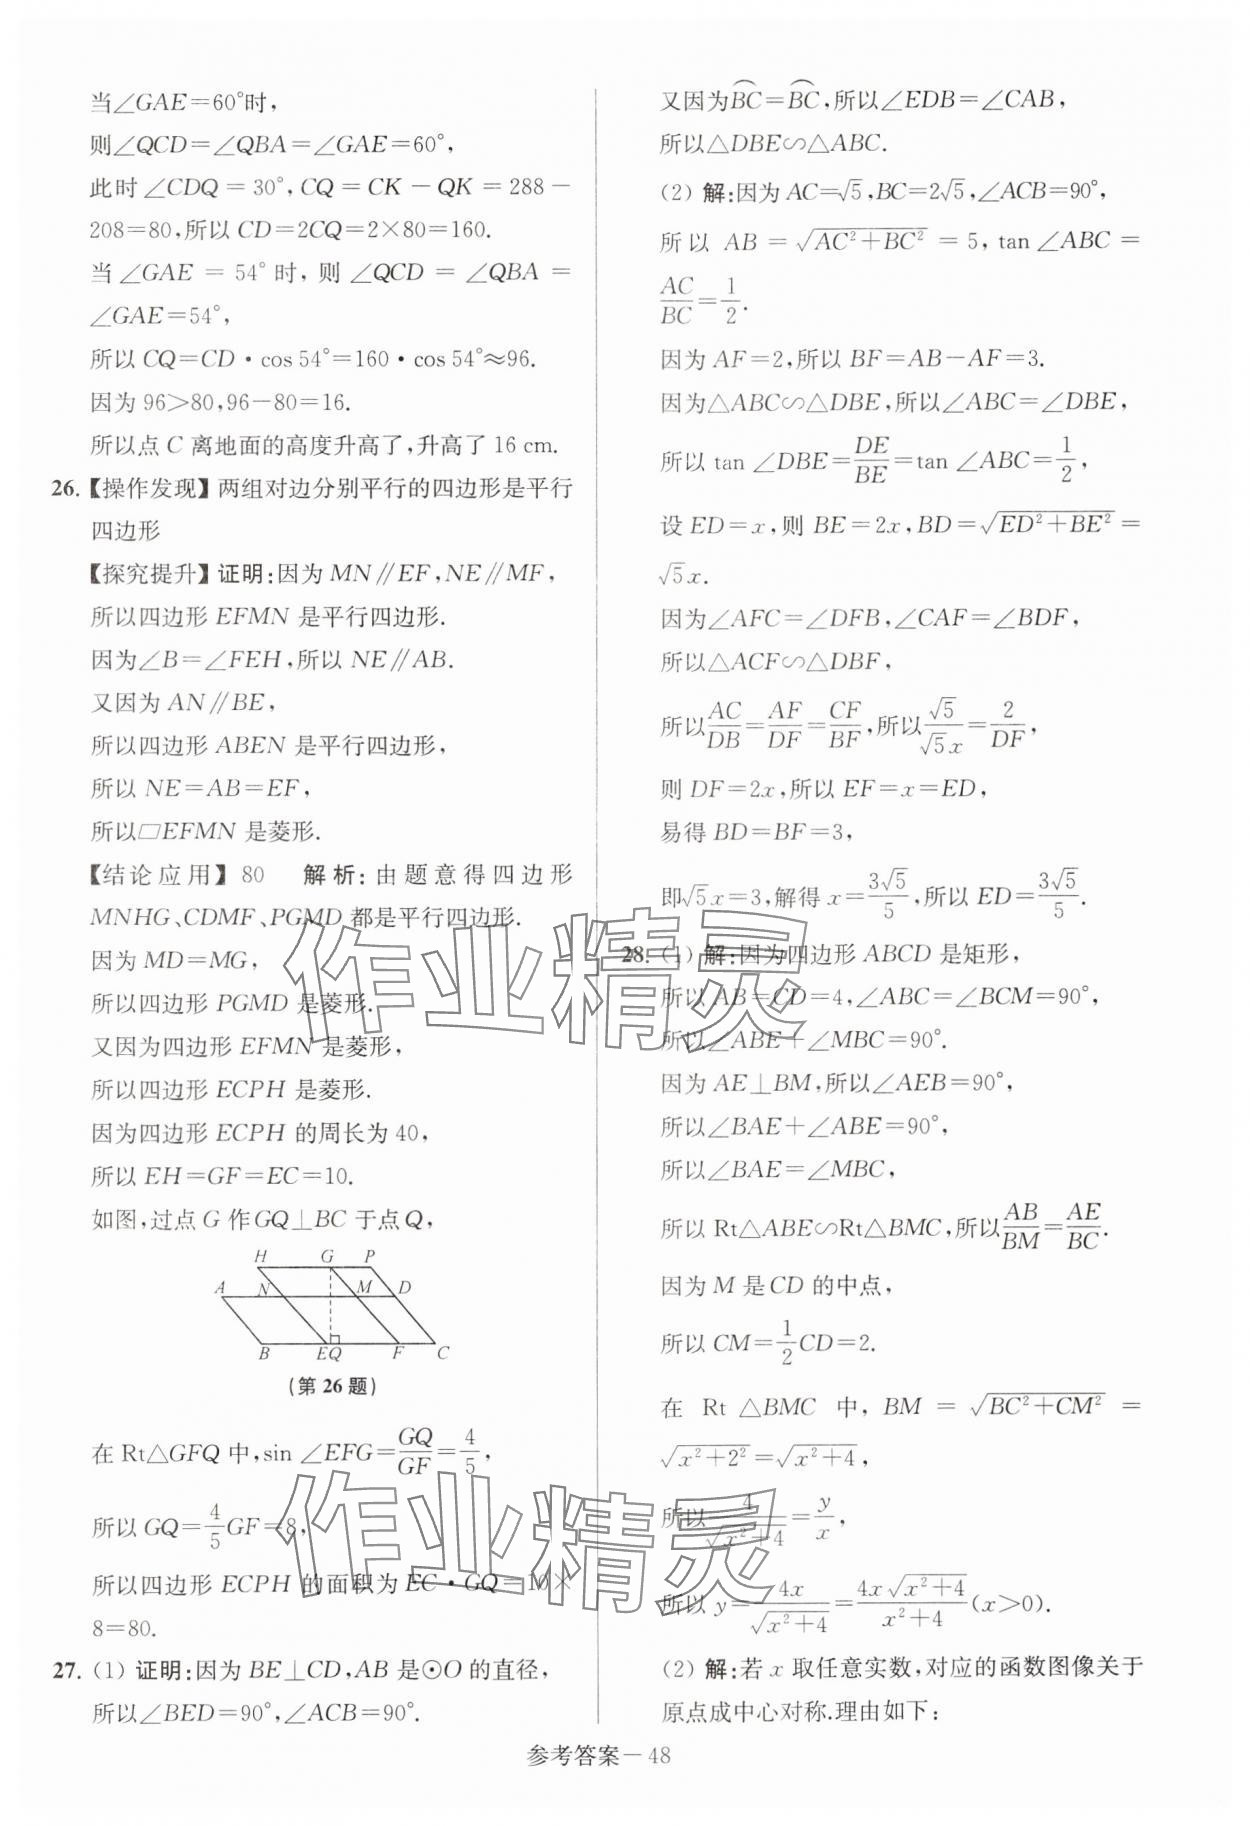 当∠GAE=60°时,
则∠QCD=∠QBA=∠GAE=60°,
此时∠CDQ=30°,CQ=CK-QK=288-
208=80,所以CD=2CQ=2×80=160.
当∠GAE=54°时,则∠QCD=∠QBA=
∠GAE=54°,
所以CQ=CD·cos 54°=160·cos 54°≈96.
因为96>80,96-80=16.
所以点C离地面的高度升高了,升高了16 cm.
26.【操作发现】两组对边分别平行的四边形是平行
四边形
【探究提升】证明:因为MN∥EF,NE∥MF,
所以四边形EFMN是平行四边形.
因为∠B=∠FEH,所以NE∥AB.
又因为AN∥BE,
所以四边形ABEN是平行四边形,
所以NE=AB=EF,
所以▱EFMN是菱形.
【结论应用】80 解析:由题意得四边形
MNHG、CDMF、PGMD都是平行四边形.
因为MD=MG,
所以四边形PGMD是菱形.
又因为四边形EFMN是菱形,
所以四边形ECPH是菱形.
因为四边形ECPH的周长为40,
所以EH=GF=EC=10.
如图,过点G作GQ⊥BC于点Q,
H G P
A N M D
B E Q F C
(第26题)
在Rt△GFQ中,sin∠EFG=GQ/GF=4/5,
所以GQ=4/5GF=8,
所以四边形ECPH的面积为EC·GQ=10×
8=80.
27.(1)证明:因为BE⊥CD,AB是⊙O的直径,
所以∠BED=90°,∠ACB=90°.
又因为B͡C=B͡C,所以∠EDB=∠CAB,
所以△DBE∽△ABC.
(2)解:因为AC=√5,BC=2√5,∠ACB=90°,
所以AB=√(AC²+BC²)=5,tan∠ABC=
AC/BC=1/2.
因为AF=2,所以BF=AB-AF=3.
因为△ABC∽△DBE,所以∠ABC=∠DBE,
所以tan∠DBE=DE/BE=tan∠ABC=1/2,
设ED=x,则BE=2x,BD=√(ED²+BE²)=
√5x.
因为∠AFC=∠DFB,∠CAF=∠BDF,
所以△ACF∽△DBF,
所以AC/DB=AF/DF=CF/BF,所以√5/√5x=2/DF,
则DF=2x,所以EF=x=ED,
易得BD=BF=3,
即√5x=3,解得x=3√5/5,所以ED=3√5/5.
28.(1)解:因为四边形ABCD是矩形,
所以AB=CD=4,∠ABC=∠BCM=90°,
所以∠ABE+∠MBC=90°.
因为AE⊥BM,所以∠AEB=90°,
所以∠BAE+∠ABE=90°,
所以∠BAE=∠MBC,
所以Rt△ABE∽Rt△BMC,所以AB/BM=AE/BC.
因为M是CD的中点,
所以CM=1/2CD=2.
在Rt△BMC中,BM=√(BC²+CM²)=
√(x²+2²)=√(x²+4),
所以4/√(x²+4)=y/x,
所以y=4x/√(x²+4)=4x√(x²+4)/(x²+4)(x>0).
(2)解:若x取任意实数,对应的函数图像关于
原点成中心对称.理由如下:
作业精灵
作业精灵
参考答案-48